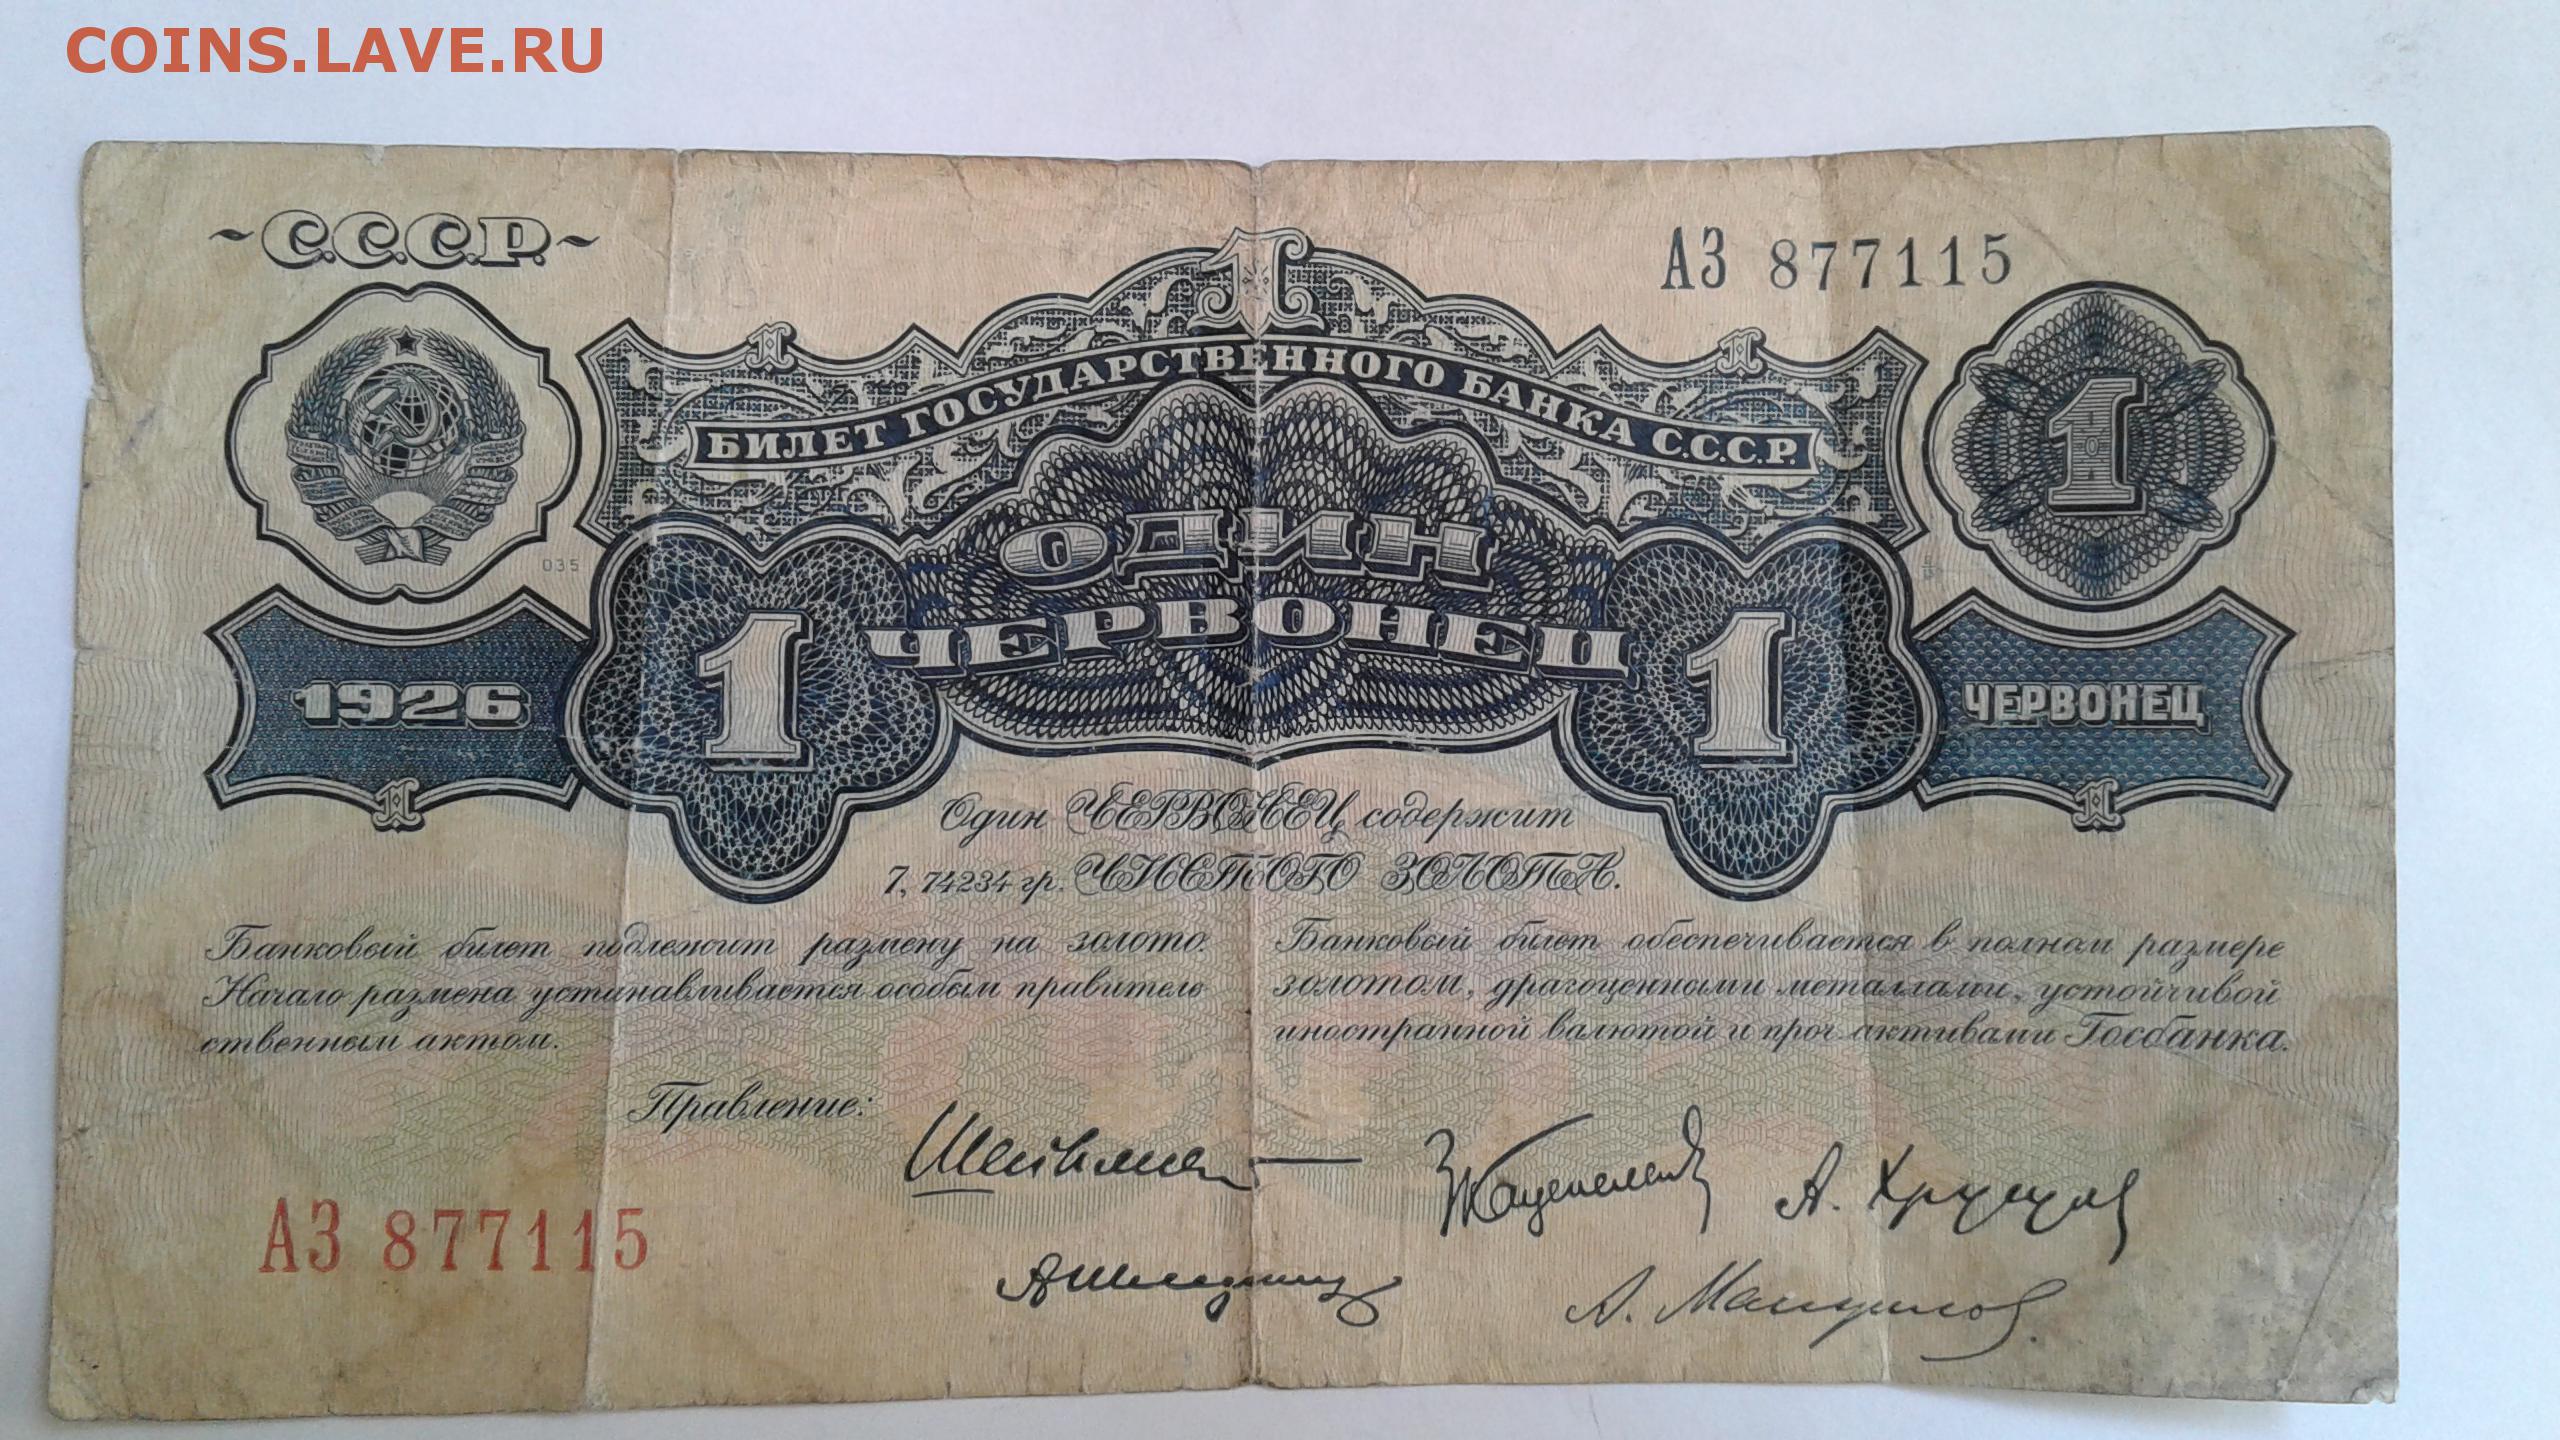 COINS.LAVE.RU
~С.С.С.Р.~
АЗ 877115
1
1
1
БИЛЕТ ГОСУДАРСТВЕННОГО БАНКА С.С.С.Р.
1
ОДИН
ЧЕРВОНЕЦ
035
1926
1
1
ЧЕРВОНЕЦ
1
1
Один ЧЕРВОНЕЦ содержит
7, 74234 гр. ЧИСТОГО ЗОЛОТА.
Банковый билет подлежит размену на золото.
Начало размена устанавливается особым правитель
ственным актом.
Банковый билет обеспечивается в полном размере
золотом, драгоценными металлами, устойчивой
иностранной валютой и проч. активами Госбанка.
Правление:
АЗ 877115